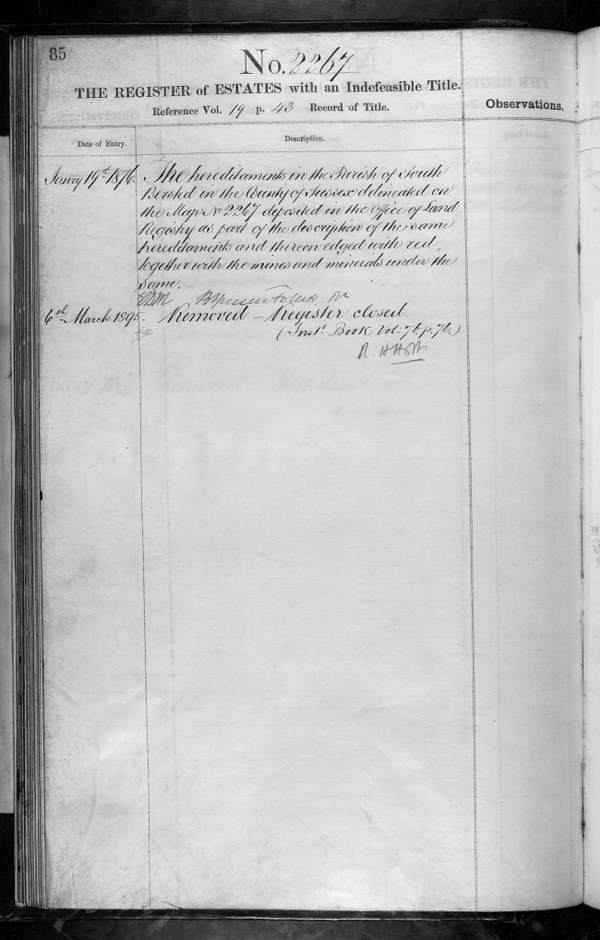 85
No. 2267
THE REGISTER of ESTATES with an Indefeasible Title.
Reference Vol. 19 p. 43 Record of Title.
Observations,
Date of Entry.
Description.
Janry 19th 1876. The hereditaments in the Parish of South
Bersted in the County of Sussex delineated on
the Map No 2267 deposited in the Office of Land
Registry as part of the description of the same
hereditaments and thereon edged with red,
together with the mines and minerals under the
same.
6th March 1895. Removed – Register closed.
(Inst. Book Vol: 76 p. 76.)